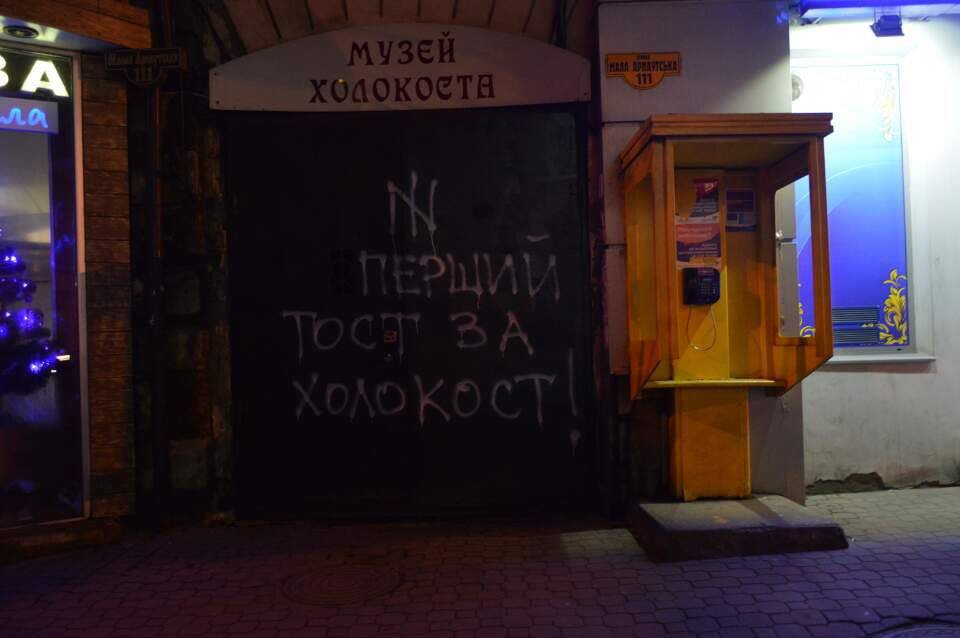 МУЗЕЙ
ХОЛОКОСТА
Мала Арнаутська
111
МАЛА АРНАУТСЬКА
111
ВА
ла
ПЕРШИЙ
ТОСТ ЗА
ХОЛОКОСТ!